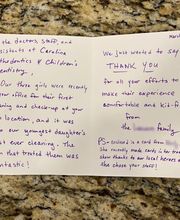 the doctors, staff, and
sistants of Carolina
thodontics & Children's
entistry,
Our three girls were recently
your office for their first
ning and check-up at your
location, and it was
our youngest daughter's
st ever cleaning. The
that treated them was
ntastic!
We just wanted to say
THANK YOU
for all your efforts to
make their experience
comfortable and kid-f
from
the family
PS- enclosed is a card from
She recently made cards
show thanks to our local heroes
she chose your staff!